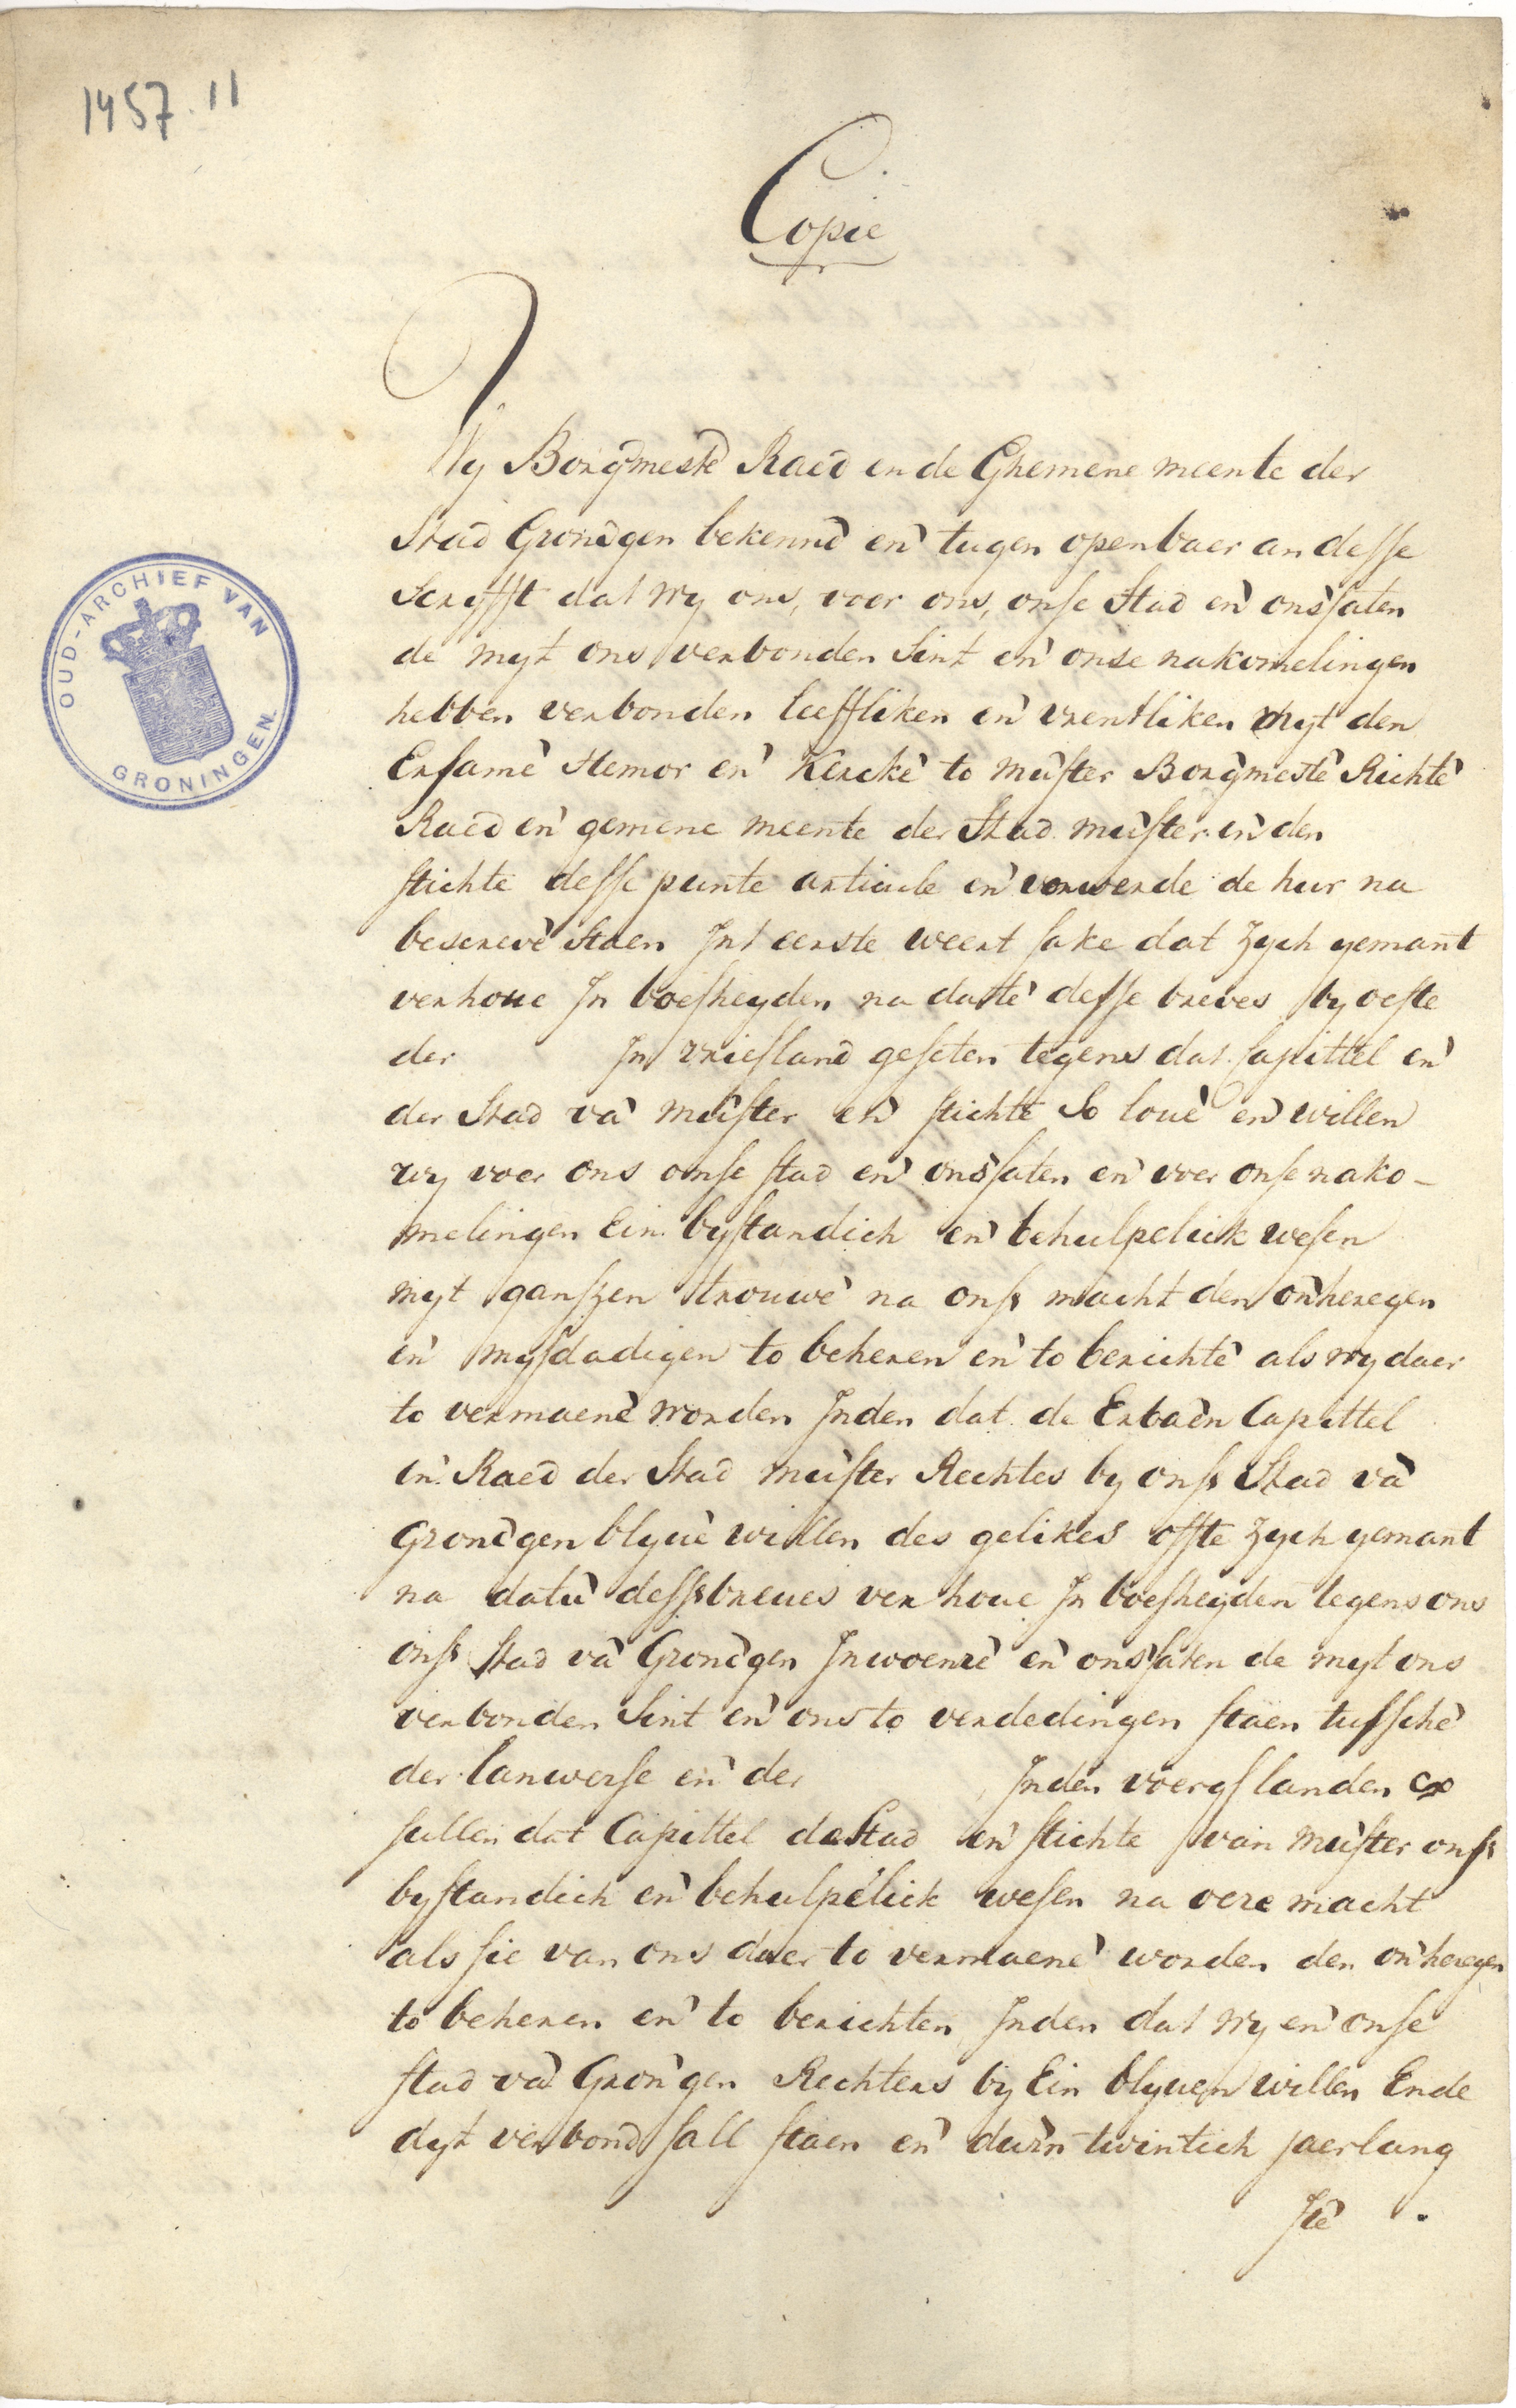 1457.11
Copie
Wy Borg̃mestẽ Raed ende Ghemene meente der
Stad Gronẽgen bekennẽ en̄ tugen openbaer an desse
Scryfft dat wy ons, voer ons, onse Stad en̄ onsz̃aten
de myt ons verbonden sint en̄ onse nakomelingen
hebben verbonden lieffliken en̄ vrentliken myt den
Ersamẽ Hemor en̄ Kerckẽ to mũster Borg̃mestẽ Richtẽ
Raed en̄ gemene meente der Stad mũster en̄ den
stichte desse punte articule en̄ vorwerde de hur na
bescrevẽ staen Int eerste weert sake dat zych yemant
verhoue In boesheyden na dattẽ desse breves by oeste
der In vriesland geseten tegens dat Capittel en̄
der Stad vã mũster en̄ stichte So louẽ en̄ willen
wy voer ons onse stad en̄ onssaten en̄ voer onse nako-
melingen Ein bystandich en̄ behulpelick wesen
myt ganszen trouwẽ na onss macht den on̄heregen
en̄ mysdadigen to beheren en̄ to berichtẽ als wy daer
to vermaenẽ worden Inden dat de Erbãen Capittel
en̄ Raed der Stad mũster Rechtes by onss Stad vã
Gronẽgen blyuẽ willen des gelikes offte zych yemant
na datũ dessbreues verhoue In boesheyden tegens ons
onss stad vã Gronẽgen Inwoenrẽ en̄ onssaten de myt ons
verbonden sint en̄ ons to verdedingen staen tusschẽ
der lanwerse en̄ der Inden voergs landen
sullen dat Capittel de Stad en̄ stichte van mũster onss
bystandich en̄ behulpelick wesen na oere macht
als sie van ons daer to vermaenẽ worden den on̄heregen
to beheren en̄ to berichten Inden dat wy en̄ onse
stad vã Gron̄gen Rechters by Ein blyuen willen Ende
dyt verbond sall staen en̄ durn̄ twintich jaerlang
stẽ
OUD-ARCHIEF VAN GRONINGEN.